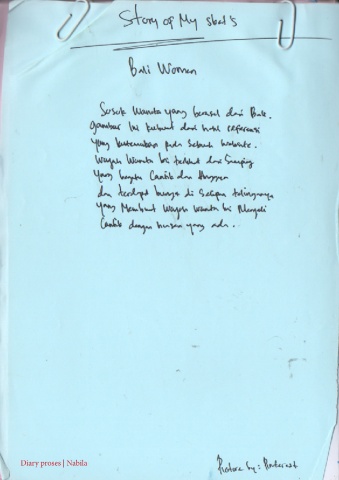 Story of My sket's
Bali Women
Sosok Wanita yang berasal dari Bali.
gambar ini kubuat dari hasil referensi
yang kutemukan pada sebuah website.
Wajah Wanita ini terlihat dari Samping
yang begitu Cantik dan Anggun
dan terdapat bunga di Selipan telinganya
yang Membuat Wajah wanita ini Menjadi
Cantik dengan hiasan yang ada.
Diary proses | Nabila
Picture by : Pinterest